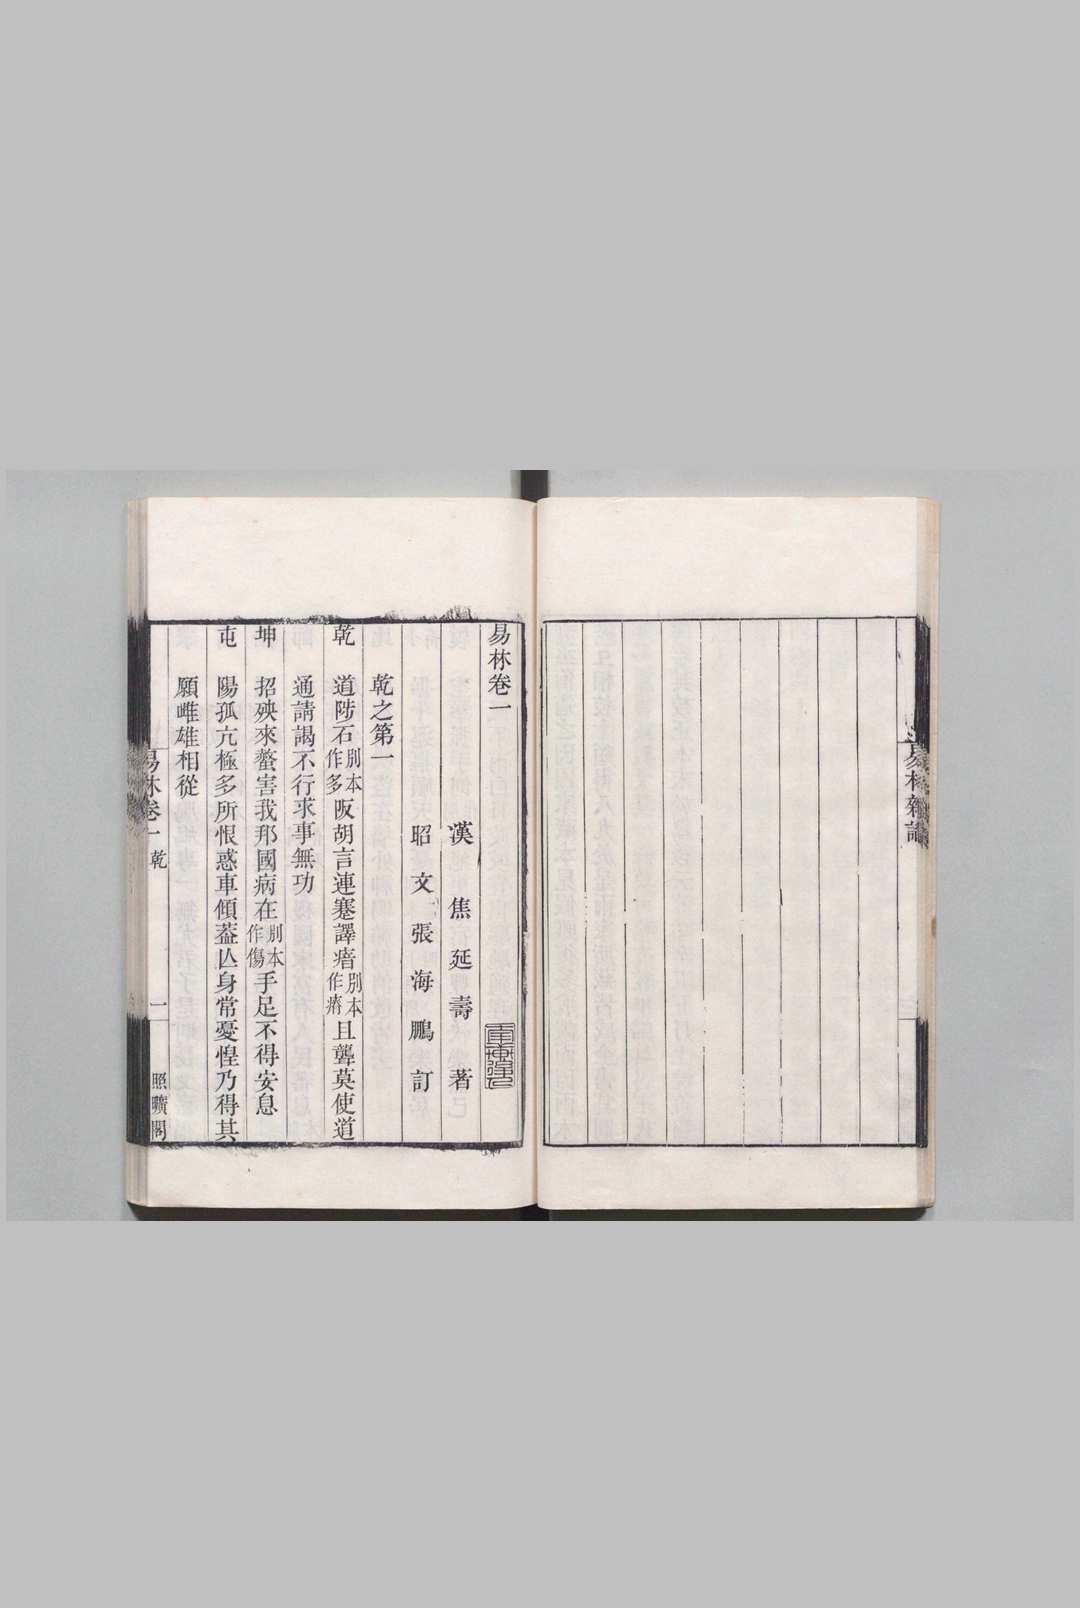 易林雜識
易林卷一
漢焦延壽著
昭文張海鵬訂
乾之第一
乾 道陟石別本作多阪胡言連蹇譯瘖別本作瘠且聾莫使道
通請謁不行求事無功
坤 招殃來螫害我邦國病在別本作傷手足不得安息
屯 陽孤亢極多所恨惑車傾葢亾身常憂惶乃得其
願雌雄相從
易林卷一 乾 一 照曠閣